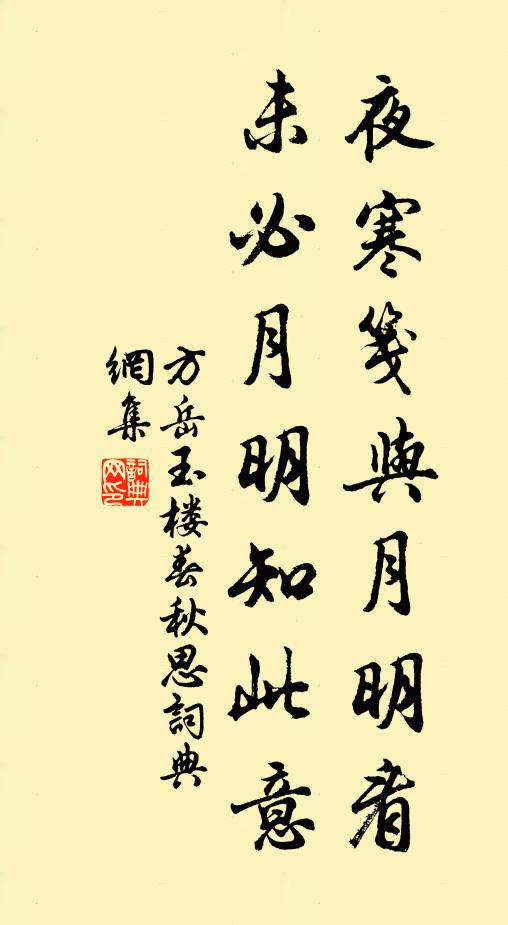 夜寒箋與月明看
未必月明知此意
方岳玉楼春秋思詞典
網集
詞典
网印